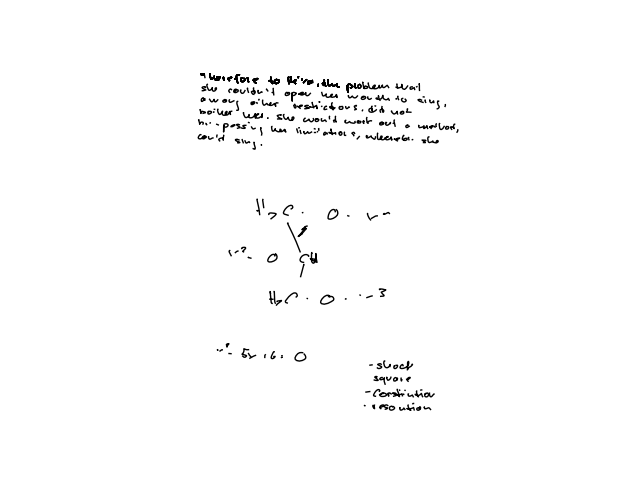 Therefore to Reiva, the problem that
she couldn't open her mouth to sing,
among other restrictions, did not
bother her. She would work out a method,
by-passing her limitations, whereby she
could sing.
H₂C · O ·
O CH
H₂C · O · - 3
O
- shock
square
- Constitution
- resolution